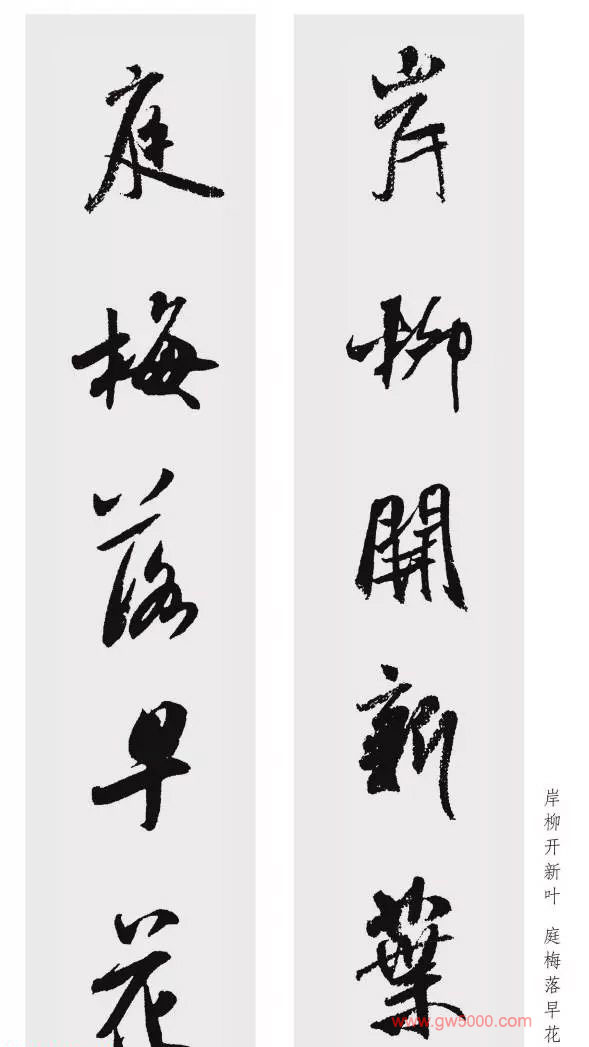 岸柳開新葉
庭梅落早花
岸柳开新叶 庭梅落早花
www.gw5000.com